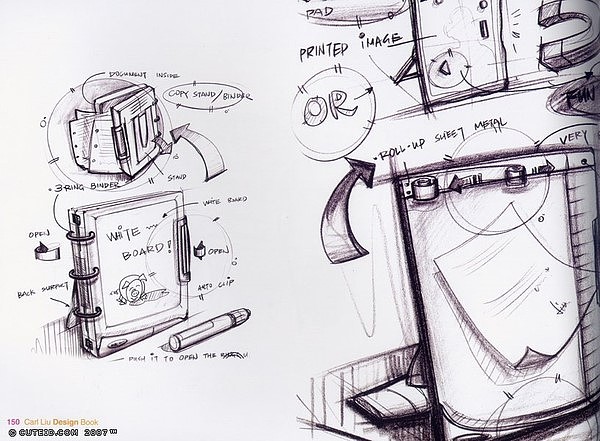 DOCUMENT INSIDE
COPY STAND/BINDER
STAND
3-RING BINDER
WHITE BOARD
OPEN
WHITE
BOARD!
OPEN
BACK SUPPORT
AUTO CLIP
PUSH IT TO OPEN THE
PAD
PRINTED IMAGE
OR
FUN
ROLL-UP SHEET METAL
VERY
150 Carl Liu Design Book
© CUTEID.COM 2007™